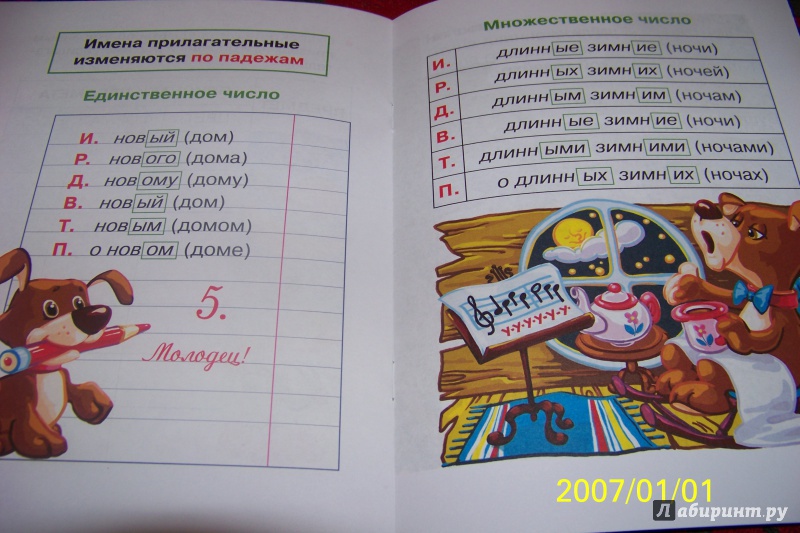 Имена прилагательные
изменяются по падежам
Единственное число
И. новый (дом)
Р. нового (дома)
Д. новому (дому)
В. новый (дом)
Т. новым (домом)
П. о новом (доме)
5.
Молодец!
Множественное число
И. длинные зимние (ночи)
Р. длинных зимних (ночей)
Д. длинным зимним (ночам)
В. длинные зимние (ночи)
Т. длинными зимними (ночами)
П. о длинных зимних (ночах)
У-У-У-У-У-У
2007/01/01
Лабиринт.ру